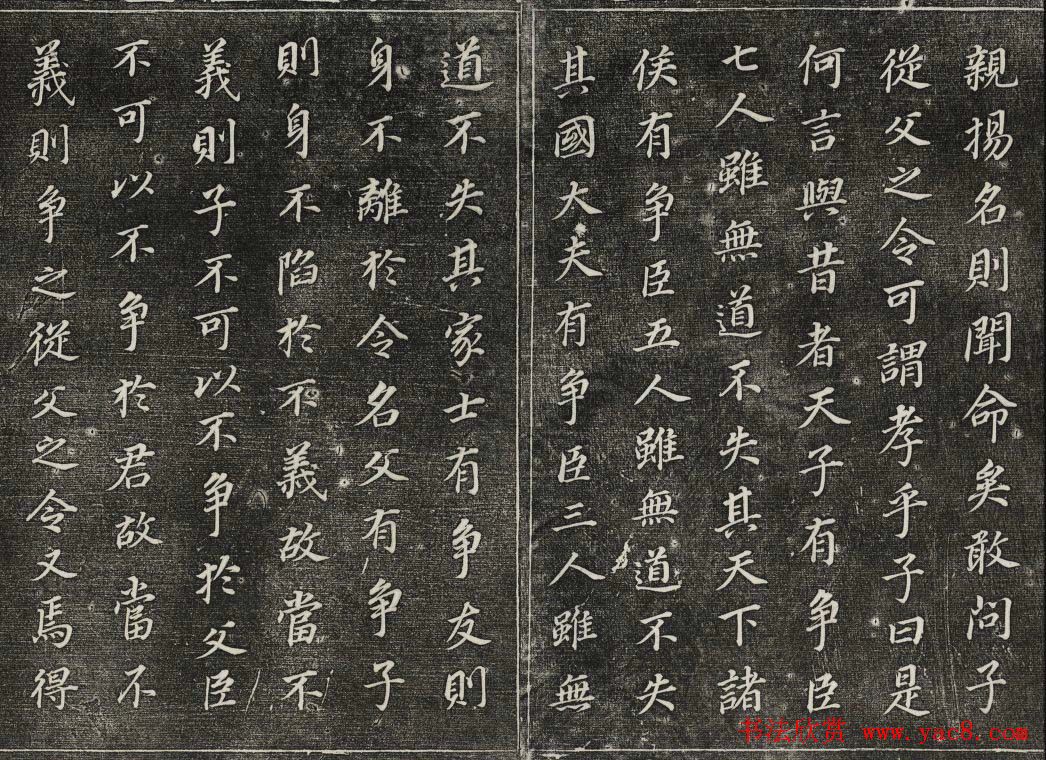 親揚名則聞命矣敢問子
從父之令可謂孝乎子曰是
何言與昔者天子有争臣
七人雖無道不失其天下諸
侯有争臣五人雖無道不失
其國大夫有争臣三人雖無
道不失其家士有争友則
身不離於令名父有争子
則身不陷於不義故當不
義則子不可以不争於父臣
不可以不争於君故當不
義則争之從父之令又焉得
书法欣赏 www.yac8.com